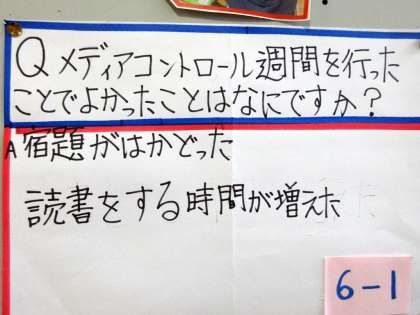 Qメディアコントロール週間を行った
ことでよかったことはなにですか?
A宿題がはかどった
読書をする時間が増えた
6-1